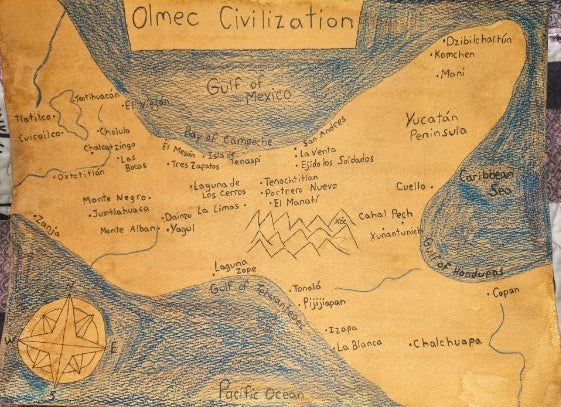 Olmec Civilization
Gulf of
Mexico
•Dzibilchaltún
•Komchen
•Mani
Yucatán
Peninsula
Caribbean
Sea
Gulf of Honduras
Bay of Campeche
Teotihuacán
•El Viejón
Tlatilco•
Cuicuilco•
•Cholula
Chalcatzingo
•Las
Bocas
•Oxtotitlán
El Mesón
•Tres Zapotes
•Isla de
Tenaspi
•San Andres
•La Venta
•Ejido los Soldados
•Laguna de
Los Cerros
La Limas•
•Tenochtitlan
•Portrero Nuevo
•El Manatí
Cuello•
Monte Negro•
•Juxtlahuaca
Monte Alban•
•Dainzu
•Yagul
•Zanja
Xoc
Cahal Pech
Xunantunich
Laguna
Zope
Gulf of Tehuantepec
•Tonalá
•Pijijiapan
•Izapa
•La Blanca
•Chalchuapa•
•Copan
Pacific Ocean
N
W
E
S